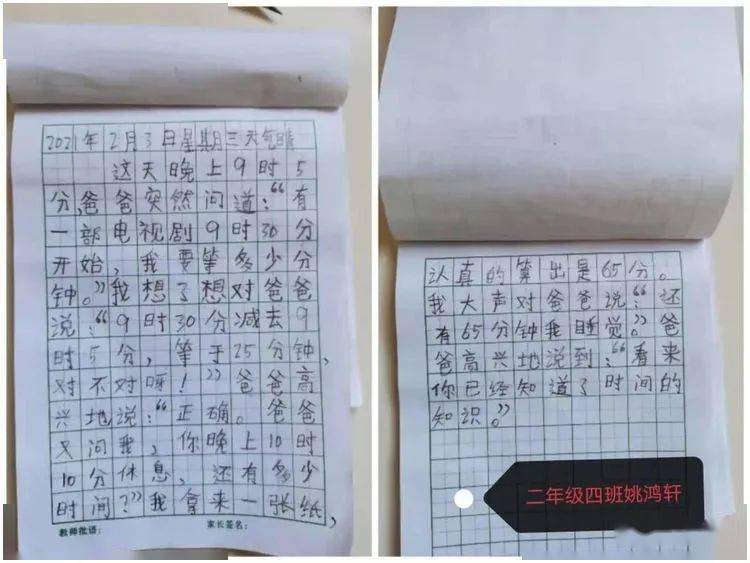 2021年2月3日星期三天气晴
这天晚上9时5
分,爸爸突然问道:“有
一部电视剧9时30分
开始，我要等多少分
钟。”我想了想对爸爸
说:“9时30分减去9
时5分，等于25分钟，
对不对呀！”爸爸高
兴地说:“正确。爸爸
又问我，你晚上10时
10分休息，还有多少
时间?”我拿来一张纸，
教师批语：
家长签名：
认真的算出是65分。
我大声对爸爸说:“还
有65分钟我睡觉。”爸
爸高兴地说到:“看来
你已经知道了时间的
知识。”
二年级四班姚鸿轩